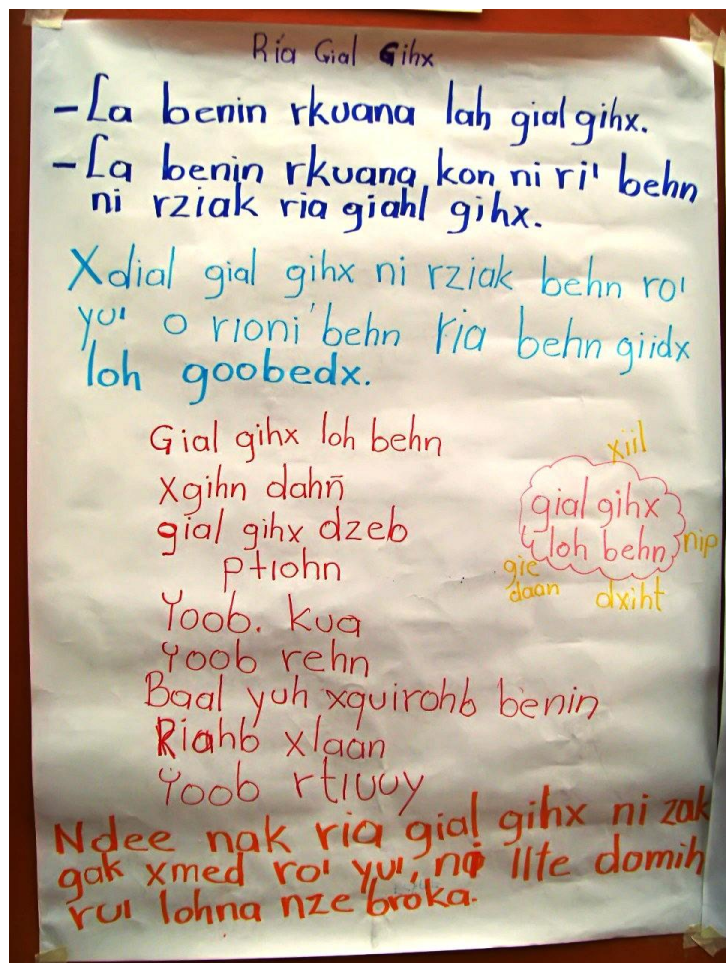 Ria Gial Gihx
- La benin rkuana lah gial gihx.
- La benin rkuana kon ni ri' behn
ni rziak ria giahl gihx.
Xdial gial gihx ni rziak behn ro'
yu' o rioni' behn ria behn giidx
loh goobedx.
Gial gihx loh behn
Xgihn dahn̄
gial gihx dzeb
ptiohn
Yoob. kua
Yoob rehn
Baal yuh xquirohb benin
Riahb xlaan
Yoob rtiuuy
xiil
gial gihx
loh behn
nip
gie
daan
dxiht
Ndee nak ria gial gihx ni zak
gak xmed ro' yu', ni IIte domih
rui lohna nze broka.